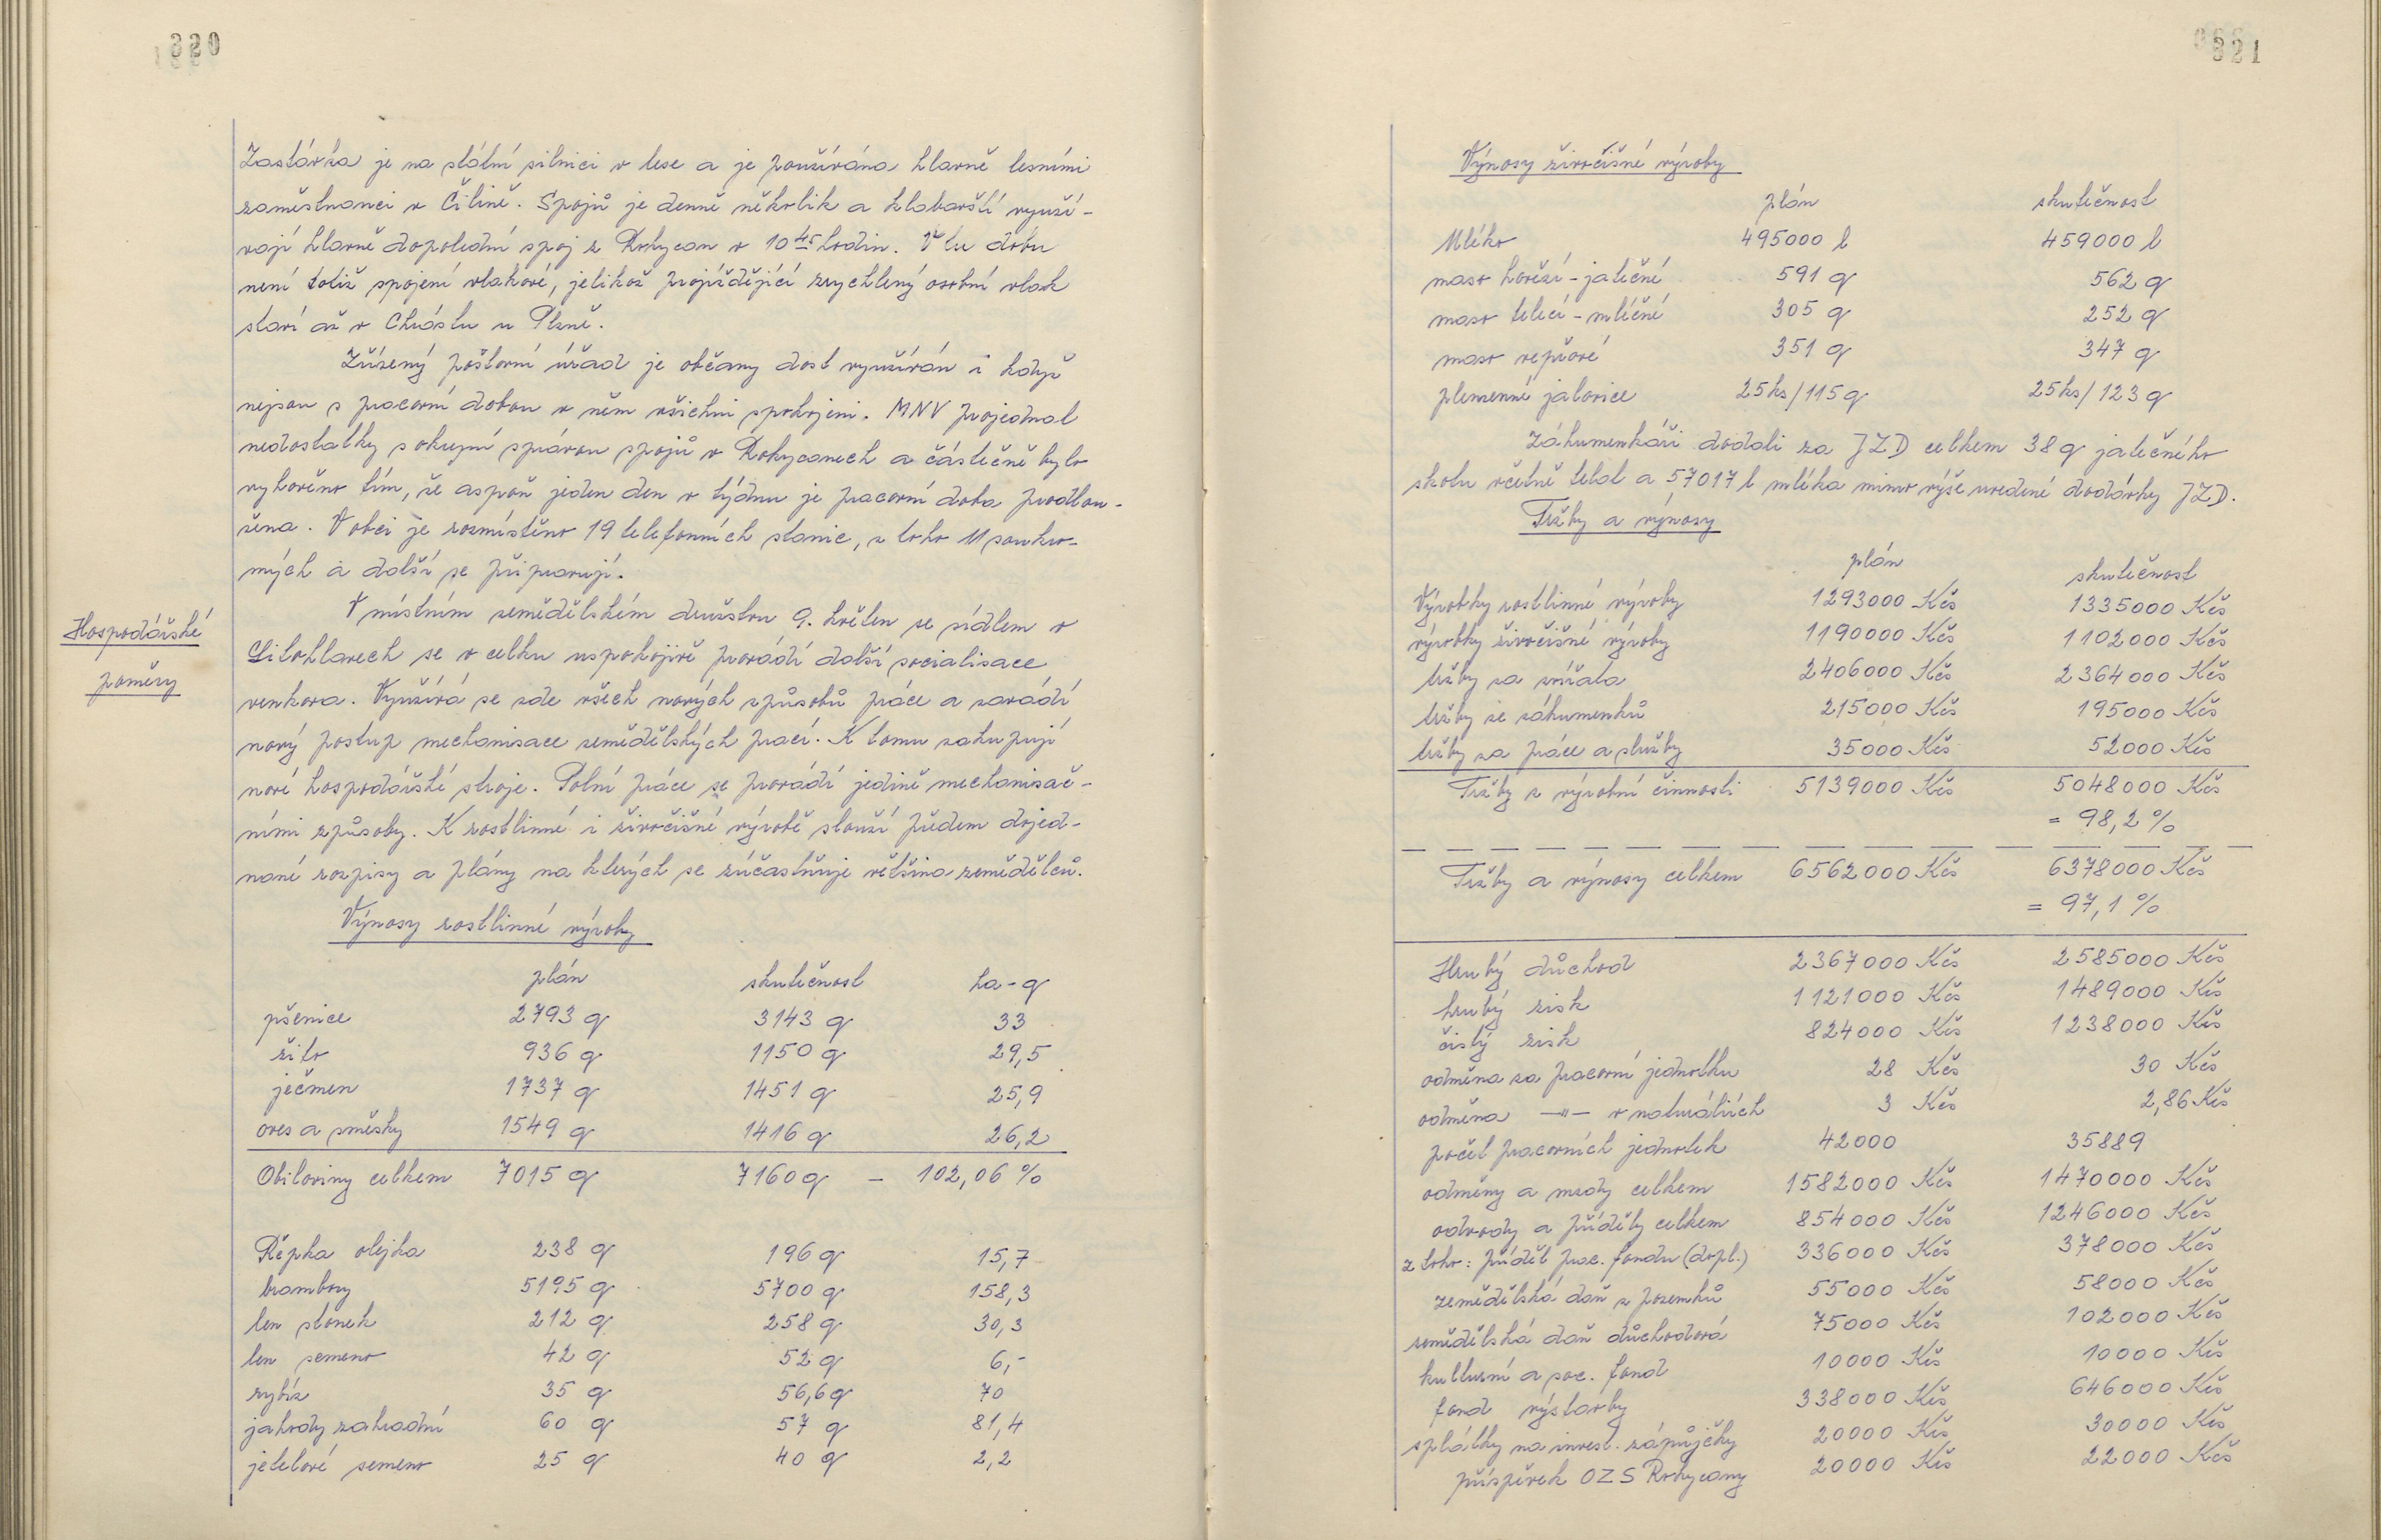 320
Zastávka je na státní silnici v lese a je používána hlavně lesními
zaměstnanci v Čilině. Spojů je denně několik a klabavští využí-
vají hlavně dopolední spoj z Rokycan v 10 45 hodin. V tu dobu
není totiž spojení vlakové, jelikož projíždějící zrychlený osobní vlak
staví až v Chrástu u Plzně.
Zřízený poštovní úřad je občany dost využíván i když
nejsou s pracovní dobou v něm všichni spokojeni. MNV projednal
nedostatky s okresní správou spojů v Rokycanech a částečně bylo
vyhověno tím, že aspoň jeden den v týdnu je pracovní doba prodlou-
žena. V obci je rozmístěno 19 telefonních stanic, z toho 11 soukro-
mých a další se připravují.
Hospodářské
poměry
V místním zemědělském družstvu 9. květen se sídlem v
Litohlavech se v celku uspokojivě provádí další socialisace
venkova. Využívá se zde všech nových způsobů práce a zavádí
nový postup mechanisace zemědělských prací. K tomu zakupují
nové hospodářské stroje. Polní práce se provádí jedině mechanisač-
ními způsoby. K rostlinné i živočišné výrobě slouží předem dojed-
nané rozpisy a plány na kterých se zúčastňuje většina zemědělců.
Výnosy rostlinné výroby
plán skutečnost ha-q
pšenice 2793 q 3143 q 33
žito 936 q 1150 q 29,5
ječmen 1737 q 1451 q 25,9
oves a směsky 1549 q 1416 q 26,2
Obiloviny celkem 7015 q 7160 q – 102,06 %
Řepka olejka 238 q 196 q 15,7
brambory 5195 q 5700 q 158,3
len stonek 212 q 258 q 30,3
len semeno 42 q 52 q 6,-
rybíz 35 q 56,6 q 70
jahody zahradní 60 q 57 q 81,4
jetelové semeno 25 q 40 q 2,2
321
Výnosy živočišné výroby
plán skutečnost
Mléko 495000 l 459000 l
maso hovězí - jatečné 591 q 562 q
maso telecí - mléčné 305 q 252 q
maso vepřové 351 q 347 q
plemenné jalovice 25 ks/115 q 25 ks/123 q
Záhumenkáři dodali za JZD celkem 38 q jatečného
skotu včetně telat a 57017 l mléka mimo výše uvedené dodávky JZD.
Tržby a výnosy
plán skutečnost
Výrobky rostlinné výroby 1293000 Kčs 1335000 Kčs
výrobky živočišné výroby 1190000 Kčs 1102000 Kčs
tržby za zvířata 2406000 Kčs 2364000 Kčs
tržby ze záhumenků 215000 Kčs 195000 Kčs
tržby za práce a služby 35000 Kčs 52000 Kčs
Tržby z výrobní činnosti 5139000 Kčs 5048000 Kčs
= 98,2 %
Tržby a výnosy celkem 6562000 Kčs 6378000 Kčs
= 97,1 %
Hrubý důchod 2367000 Kčs 2585000 Kčs
hrubý zisk 1121000 Kčs 1489000 Kčs
čistý zisk 824000 Kčs 1238000 Kčs
odměna za pracovní jednotku 28 Kčs 30 Kčs
odměna —"— v naturáliích 3 Kčs 2,86 Kčs
počet pracovních jednotek 42000 35889
odměny a mzdy celkem 1582000 Kčs 1470000 Kčs
odvody a příděly celkem 854000 Kčs 1246000 Kčs
z toho: příděl prac. fondu (dopl.) 336000 Kčs 378000 Kčs
zemědělská daň z pozemků 55000 Kčs 58000 Kčs
zemědělská daň důchodová 75000 Kčs 102000 Kčs
kulturní a soc. fond 10000 Kčs 10000 Kčs
fond výstavby 338000 Kčs 646000 Kčs
splátky na invest. zápůjčky 20000 Kčs 30000 Kčs
příspěvek OZS Rokycany 20000 Kčs 22000 Kčs